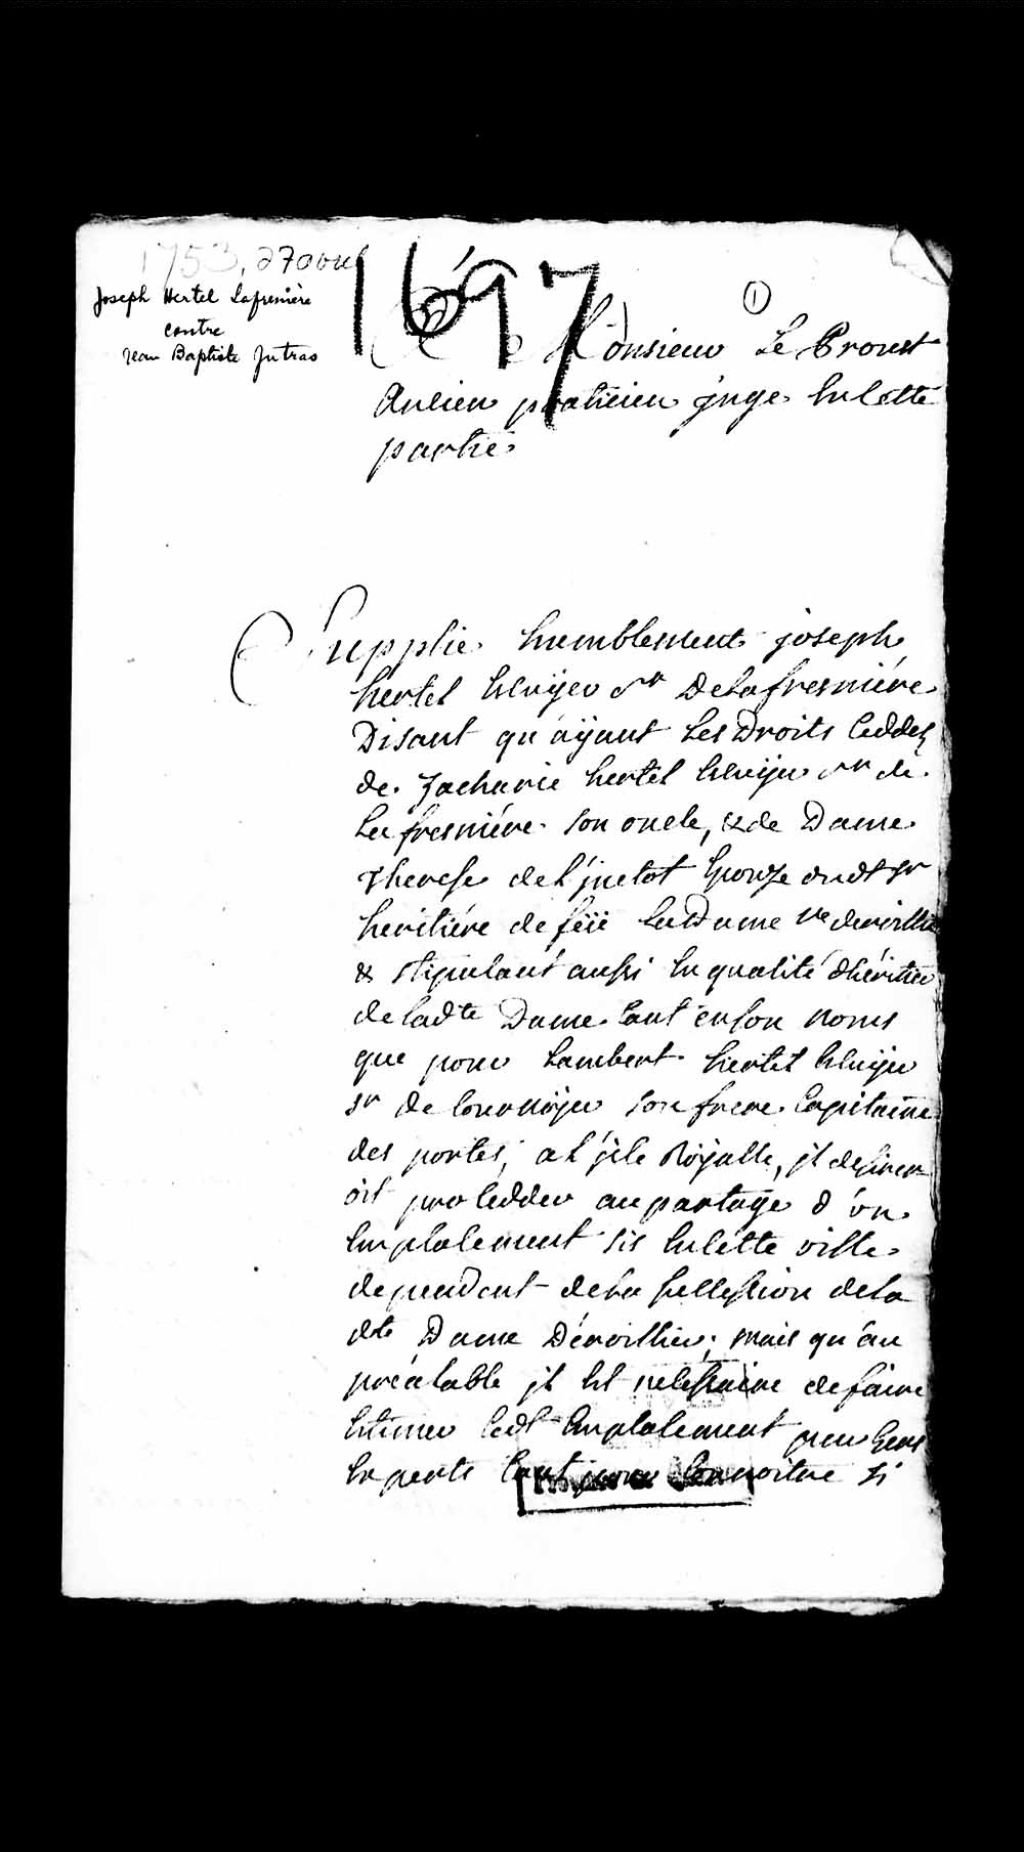 1753, 27 aout
Joseph Hertel Lafrenière
contre
Jean Baptiste Jutras
1697
1
A Monsieur Le Proust
Ancien praticien juge en cette
partie
Supplie humblement joseph
hertel Ecuyer Sr De Lafresniére
Disant qu'aÿant Les Droits Ceddez
de Zacharie hertel Ecuÿer Sr de
La fresniére son oncle, & de Dame
Therese de L'jnctot Epouze dudt Sr
heritiére de feüe La Dame Ve
& stipulant aussi en qualité dhéritier
de ladte Dame tant en son noms
que pour Lambert hertel Ecuÿer
Sr de Cournoÿer son frere Capitaine
des portes, a L'jsle Roÿalle, jl desirer
oit procedder au partage d'un
Emplacement sis en cette ville
dependent de la succession de la
dte Dame ; mais qu'au
préalable jl est necessaire de faire
Estimer Ledt Emplacement par gens
Experts tant pour Connoitre si